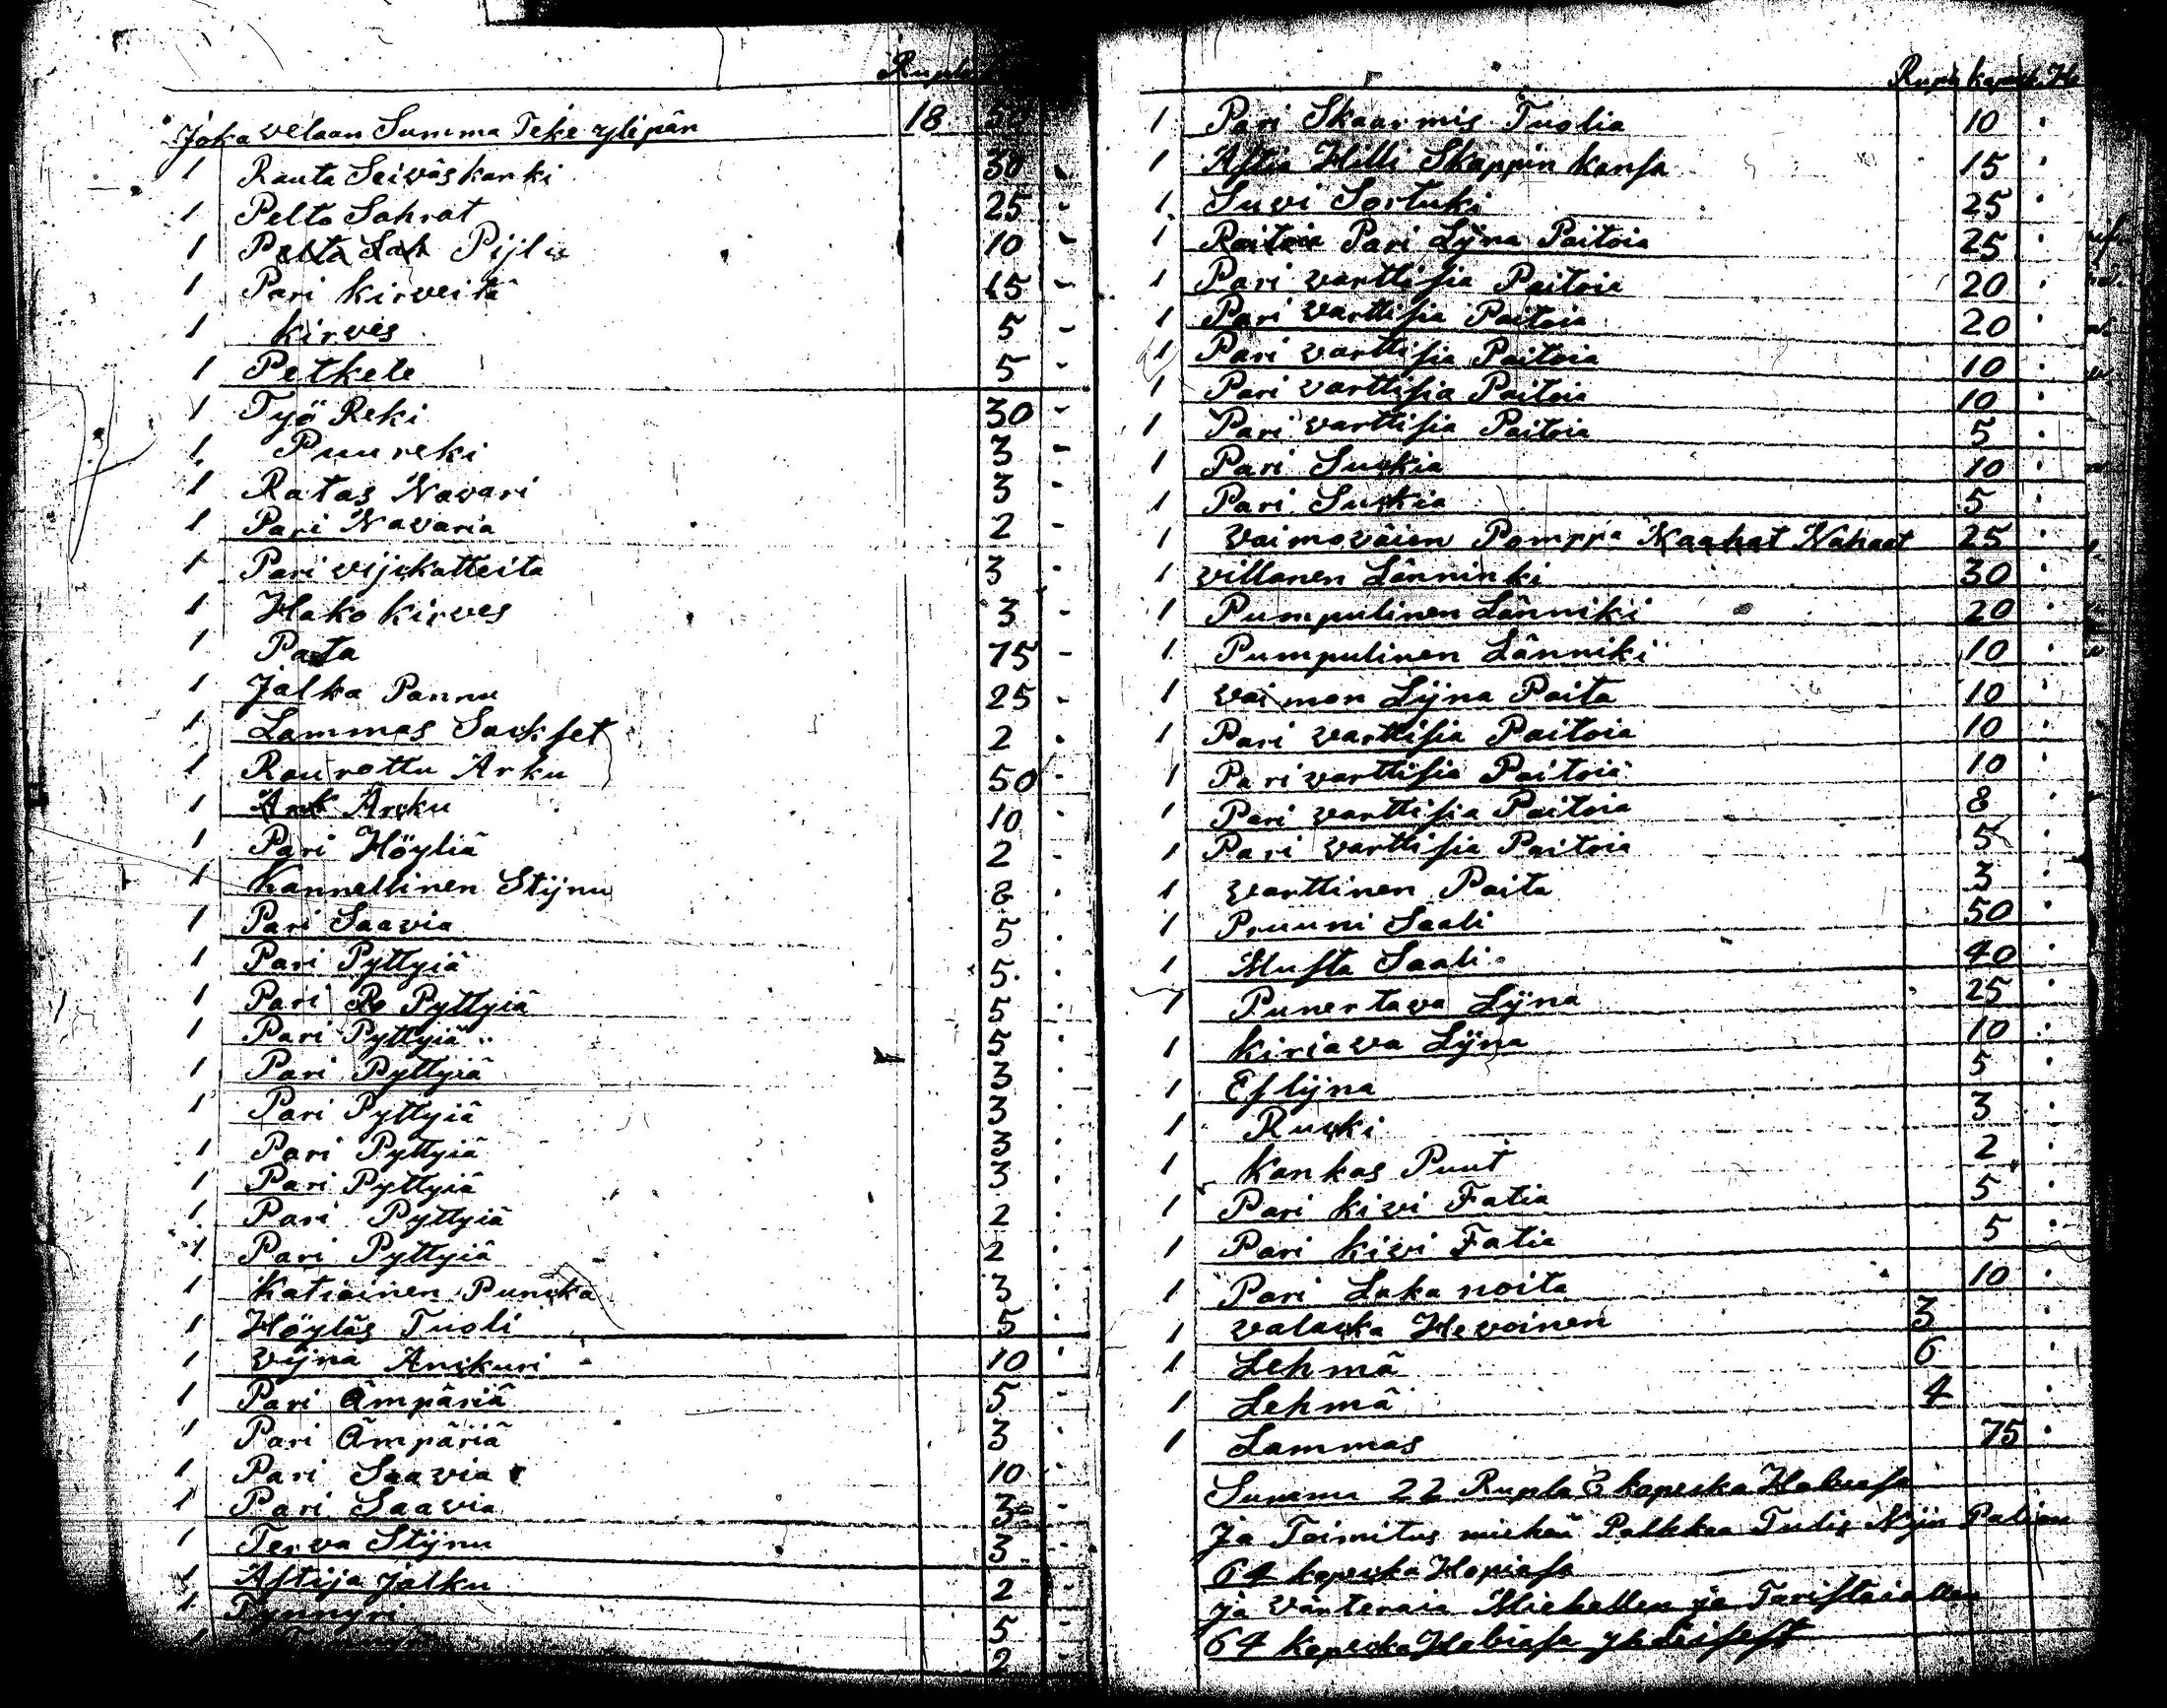 Rupla
Joka velaan Summa Teke ylipän 18 50
1 Rauta Seiväs kanki 30 -
1 Pelto Sahrat 25 -
1 Pelto Sah Pijlu 10 -
1 Pari kirveitä 15 -
1 kirves 5 -
1 Petkele 5 -
1 Työ Reki 30 -
1 Puu reki 3 -
1 Ratas Navari 3 -
1 Pari Navaria 2 -
1 Pari vijckatteita 3 -
1 Hako kirves 3 -
1 Pata 75 -
1 Jalka Pannu 25 -
1 Lammas Sackset 2 -
1 Rau rottu Arku 50 -
1 Ark Arcku 10 -
1 Pari Höyliä 2 -
1 Kannellinen Stijnu 8 -
1 Pari Saavia 5 -
1 Pari Pyttyiä 5 -
1 Pari Po Pyttyiä 5 -
1 Pari Pyttyiä 5 -
1 Pari Pyttyiä 3 -
1 Pari Pyttyiä 3 -
1 Pari Pyttyiä 3 -
1 Pari Pyttyiä 3 -
1 Pari Pyttyiä 2 -
1 Pari Pyttyiä 2 -
1 Katiainen Puncka 3 -
1 Höyläs Tuoli 5 -
1 vijna Anckuri 10 -
1 Pari Ämpäriä 5 -
1 Pari Ämpäriä 3 -
1 Pari Saavia 10 -
1 Pari Saavia 3 -
1 Terva Stijnu 3 -
1 Astija Jalku 2 -
1 Tynnyri 5 -
1 2 -
Rupla kapeck. H
1 Pari Skaarmis Tuolia 10
1 Astia Hilli Skappin kansa 15
1 Suvi Sortuki 25
1 Paitoia Pari Lijna Paitoia 25
1 Pari varttisia Paitoia 20
1 Pari varttisia Paitoia 20
1 Pari varttisia Paitoia 10
1 Pari varttisia Paitoia 10
1 Pari varttisia Paitoia 5
1 Pari Suckia 10
1 Pari Suckia 5
1 vaimoväien Pomppa Naahat Nahaat 25
1 villanen Länninki 30
1 Pumpulinen Länniki 20
1 Pumpulinen Länniki 10
1 vaimon Lijna Paita 10
1 Pari varttisia Paitoia 10
1 Pari varttisia Paitoia 10
1 Pari varttisia Paitoia 8
1 Pari varttisia Paitoia 5
1 varttinen Paita 3
1 Pruuni Saali 50
1 Musta Saali 40
1 Punertava Lijna 25
1 Kiriava Lijna 10
1 Eslijna 5
1 Rucki 3
1 Kankas Puut 2
1 Pari kivi Fatia 5
1 Pari kivi Fatia 5
1 Pari Lakanoita 10
1 valacka Hevoinen 3
1 Lehmä 6
1 Lehmä 4
1 Lammas 75
Summa 22 Rupla 8 kapecka Habiasa
Ja Toimitus miehen Palkkaa Tulis Nijn Palion
64 kapecka Hopiasa
ja värteraia Miehellen ja Taristaiallen
64 kapecka Habiasa yhdeisest